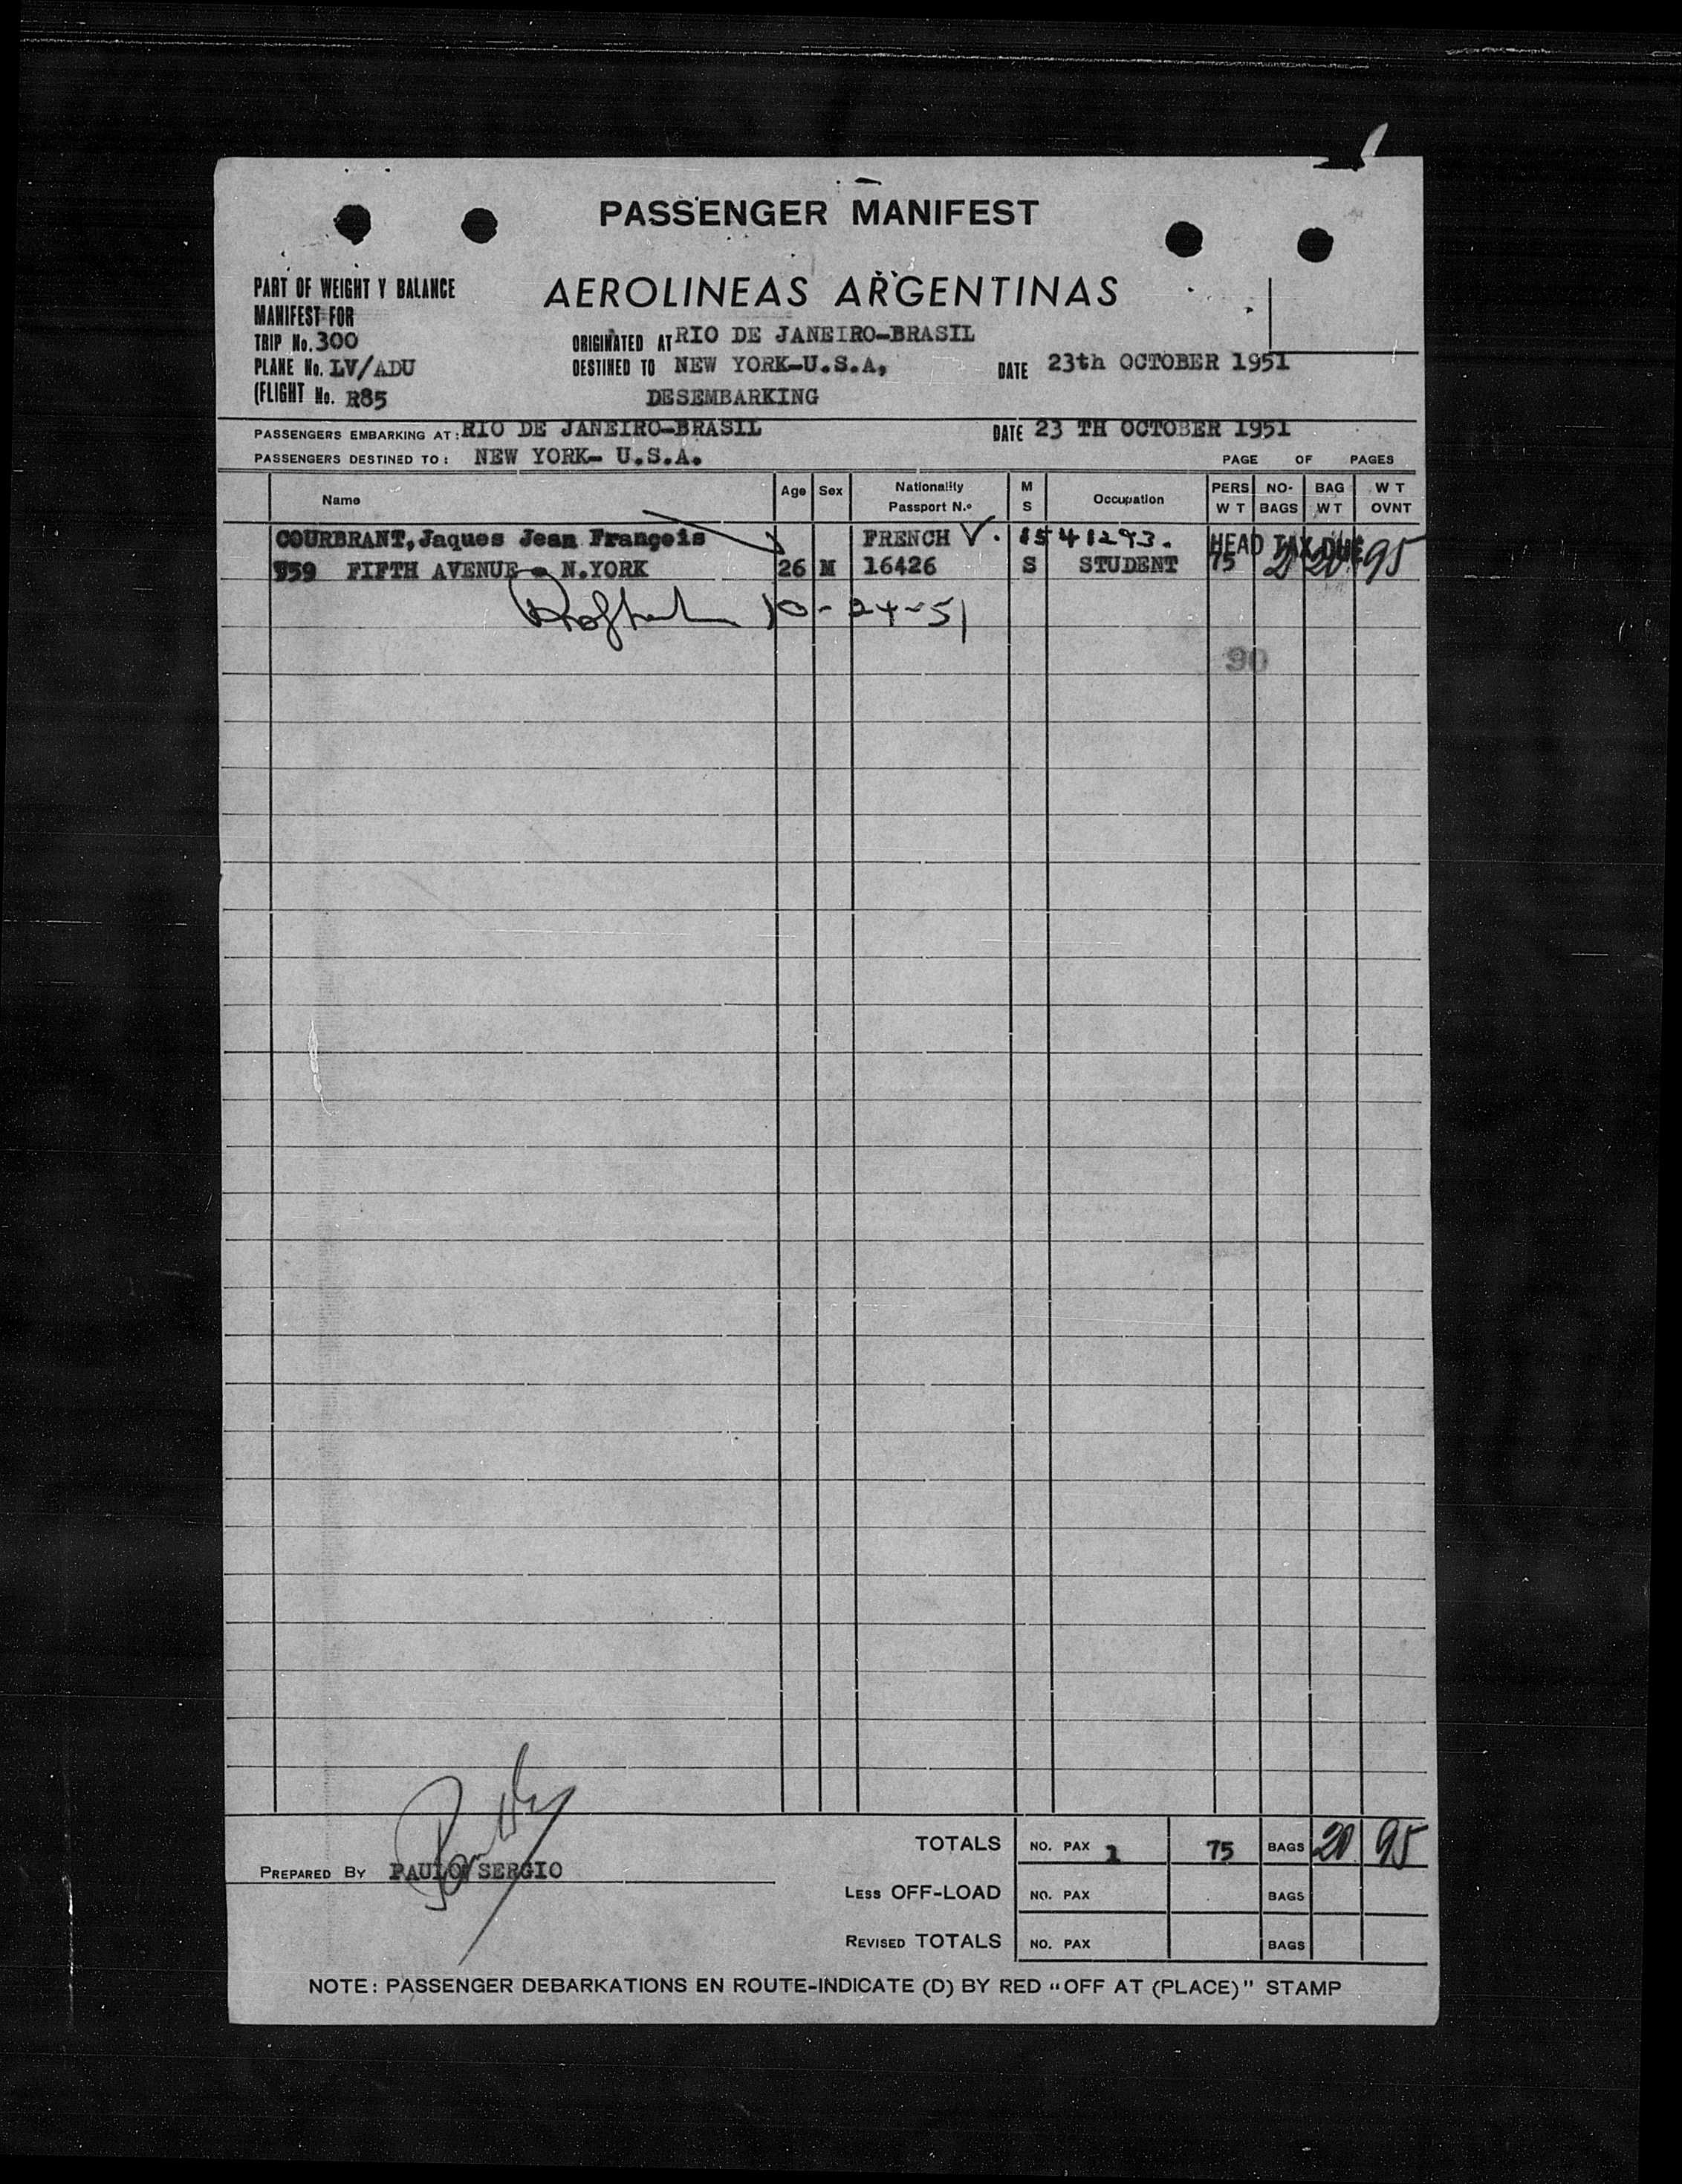 PASSENGER MANIFEST
PART OF WEIGHT Y BALANCE
MANIFEST FOR
AEROLINEAS ARGENTINAS
TRIP No. 300
ORIGINATED AT RIO DE JANEIRO-BRASIL
PLANE No. LV/ADU
DESTINED TO NEW YORK-U.S.A,
DATE 23th OCTOBER 1951
(FLIGHT No. R85
DESEMBARKING
PASSENGERS EMBARKING AT: RIO DE JANEIRO-BRASIL DATE 23 TH OCTOBER 1951
PASSENGERS DESTINED TO: NEW YORK- U.S.A. PAGE OF PAGES
Name Age Sex Nationality Passport N.º M S Occupation PERS WT NO- BAGS BAG WT WT OVNT
COURBRANT, Jaques Jean François FRENCH V. 1541293. HEAD TAX DUE
FIFTH AVENUE - N.YORK 26 M 16426 S STUDENT 75 2 20 95
10-24-51
90
TOTALS NO. PAX 1 75 BAGS 20 95
PREPARED BY PAULO SERGIO
LESS OFF-LOAD NO. PAX BAGS
REVISED TOTALS NO. PAX BAGS
NOTE: PASSENGER DEBARKATIONS EN ROUTE-INDICATE (D) BY RED "OFF AT (PLACE)" STAMP